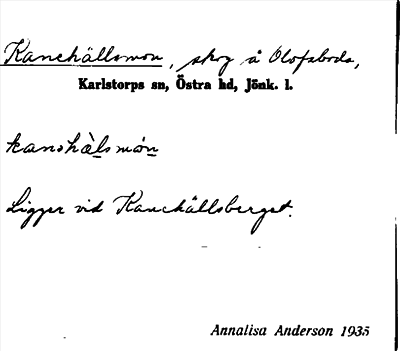 Kanehällsmon, skog å Olofsboda,
Karlstorps sn, Östra hd, Jönk. l.
kanəhàlsmón
Ligger vid Kanehällsberget.
Annalisa Anderson 1935